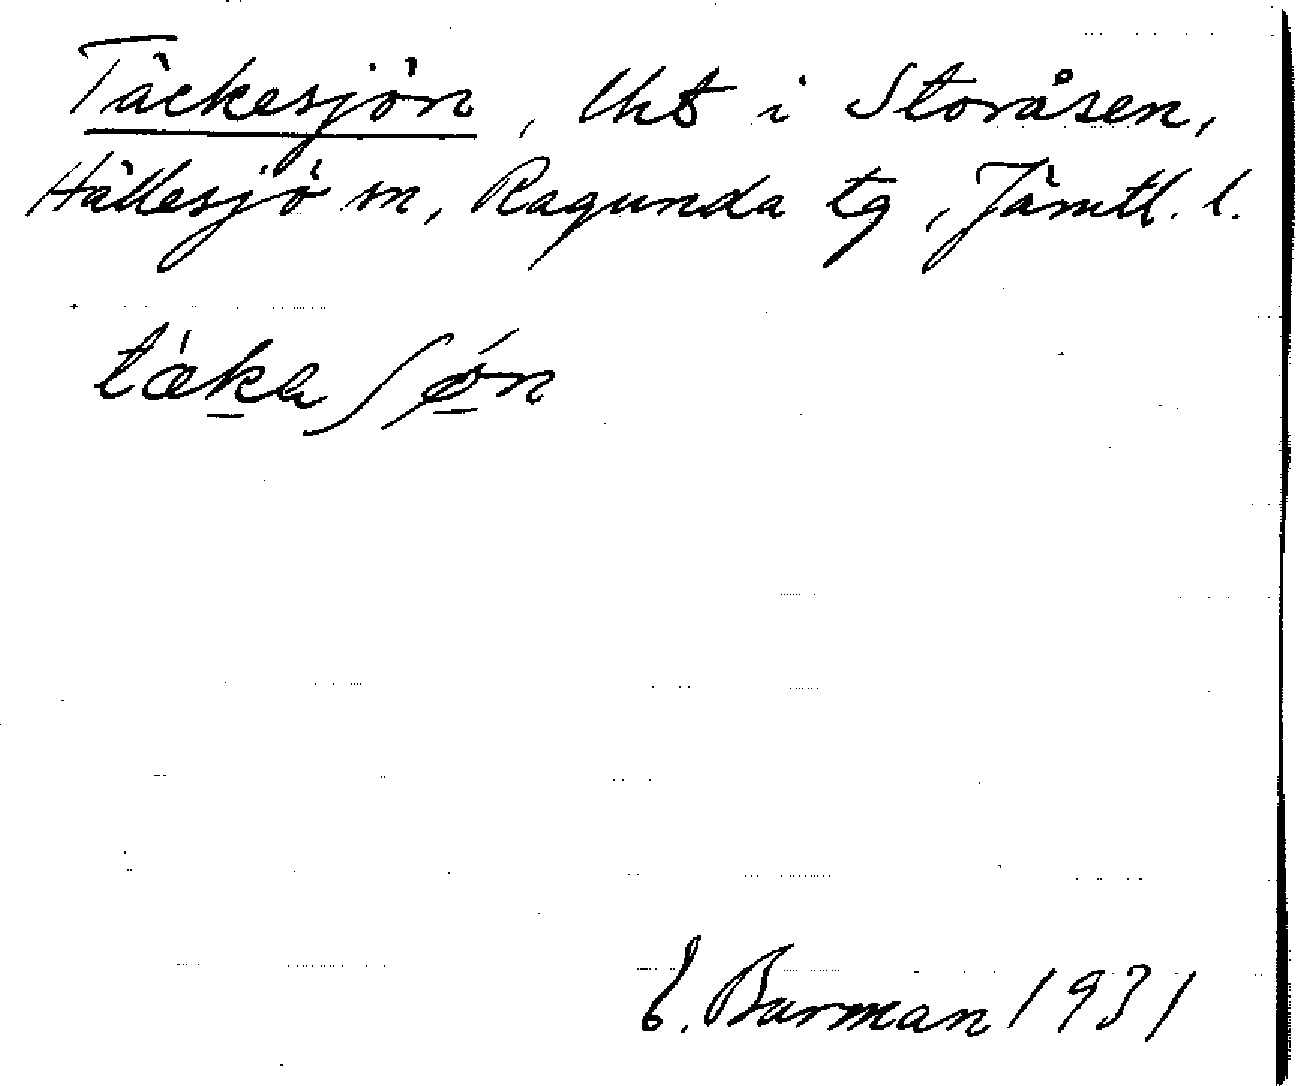 Täckesjön, Uts i Storåsen,
Hällesjö sn, Ragunda tg, Jämtl. l.
tækaʃøn
E. Barman 1931